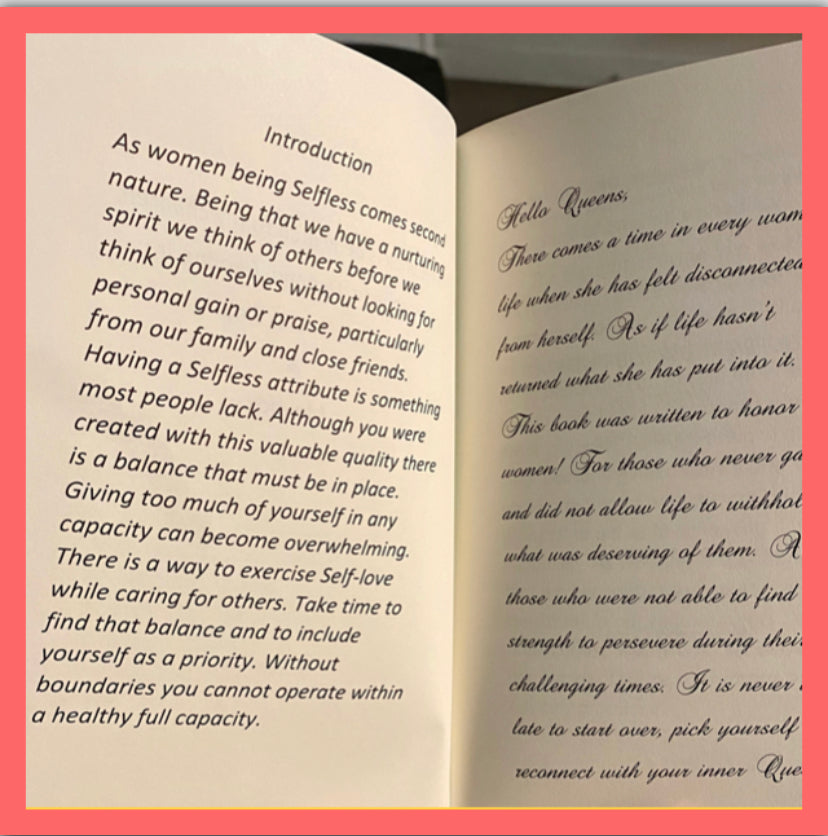 Introduction
As women being Selfless comes second
nature. Being that we have a nurturing
spirit we think of others before we
think of ourselves without looking for
personal gain or praise, particularly
from our family and close friends.
Having a Selfless attribute is something
most people lack. Although you were
created with this valuable quality there
is a balance that must be in place.
Giving too much of yourself in any
capacity can become overwhelming.
There is a way to exercise Self-love
while caring for others. Take time to
find that balance and to include
yourself as a priority. Without
boundaries you cannot operate within
a healthy full capacity.
Hello Queens,
There comes a time in every
life when she has felt disconnected
from herself. As if life hasn't
returned what she has put into it.
This book was written to honor
women! For those who never
and did not allow life to
what was deserving of them.
those who were not able to find
strength to persevere during
challenging times. It is never
late to start over, pick yourself
reconnect with your inner